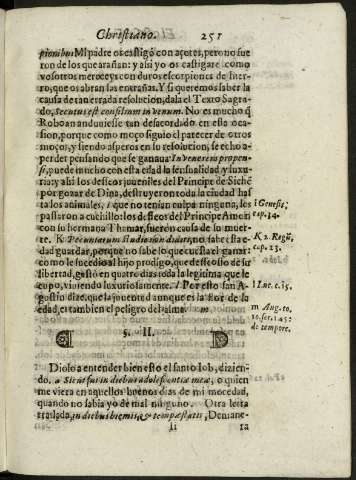 Christiano. 251
pionibus Mi padre os castigó con açotes, pero no fue
ron de los que arañan: y assi yo os castigaré como
vosotros mereceys con duros escorpiones de hier-
ro, que os abran las entrañas. Y si queremos saber la
causa de tan errada resolucion, dala el Texto Sagra-
do, Secutus est consilium iuvenum. No es mucho q̃
Roboan anduuiesse tan desacordado en esta oca
sion, porque como moço siguio el parecer de otros
moços, y siendo asperos en lo resolucion, se echo a
perder pensando que se ganaua In venerem propen-
sis, puede mucho con esta edad la sensualidad y luxu-
ria: y assi los desseos juveniles del Principe de Siche
por gozar de Dina, destruyeron toda la ciudad has
ta los animales, i que no tenian culpa ninguna, les
passaron a cuchillo: los desseos del Principe Amon
con su hermana Thamar, fueron causa de su muer
te. K Pecuniarum studiosum dixeris, no sabe esta e-
dad guardar, porque no sabe lo que cuesta el ganar:
como le sucedio al hijo prodigo, que desseoso de su
libertad, gastó en quatro dias toda la legitima que le
cupo, viuiendo luxuriosamente. l Por esto san A-
gustin dize, que la juuentud aunque es la flor de la
edad, es tambien el peligro del alma. m
i Genesis,
cap. 34.
K 2. Regũ,
cap. 13.
l Luc. c. 15.
m Aug. to.
10. ser. 145:
de tempore.
§. II.
Diolo a entender bien esto el santo Iob, dizien-
do. a Sicut fui in diebus adolescentiæ meæ, o quien
me viera en aquellos buenos dias de mi mocedad,
quando no sabia yo de mal ninguno. Otra letra
traslada, in diebus hiemis, & tempestatis, De mane-
Ii ra